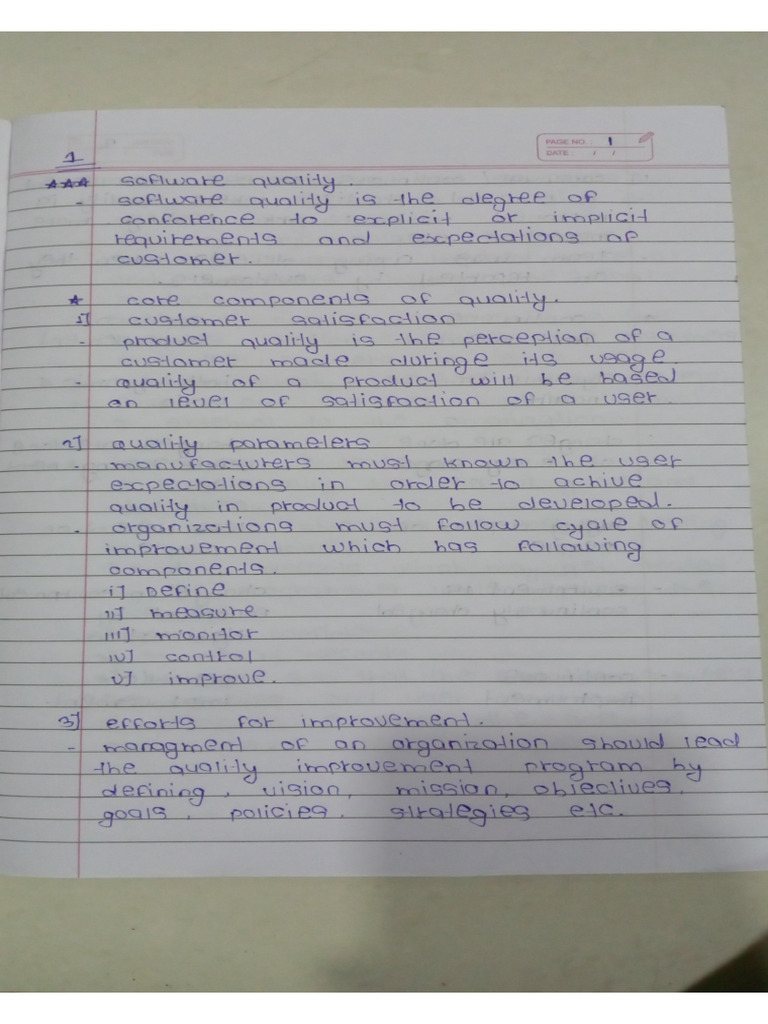 PAGE NO.: 1
DATE: / /
1
*** software quality.
- software quality is the degree of
conforence to explicit or implicit
requirements and expectations of
customer.
* core components of quality.
1] customer satisfaction
- product quality is the perception of a
customer made duringe its usage.
- quality of a product will be based
on level of satisfaction of a user
2] quality parameters
- manufacturers must known the user
expectations in order to achive
quality in product to be developed.
- organizations must follow cycle of
improvement which has following
components.
i] Define
ii] measure
iii] monitor
iv] control
v] improve.
3] efforts for improvement.
- managment of an organization should lead
the quality improvement program by
defining, vision, mission, objectives,
goals, policies, strategies etc.